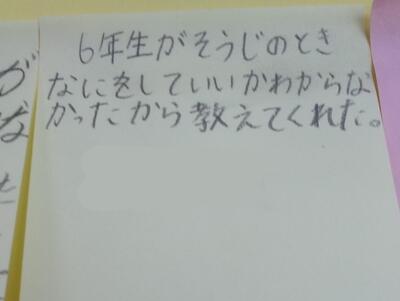 6年生がそうじのとき
なにをしていいかわからな
かったから教えてくれた。